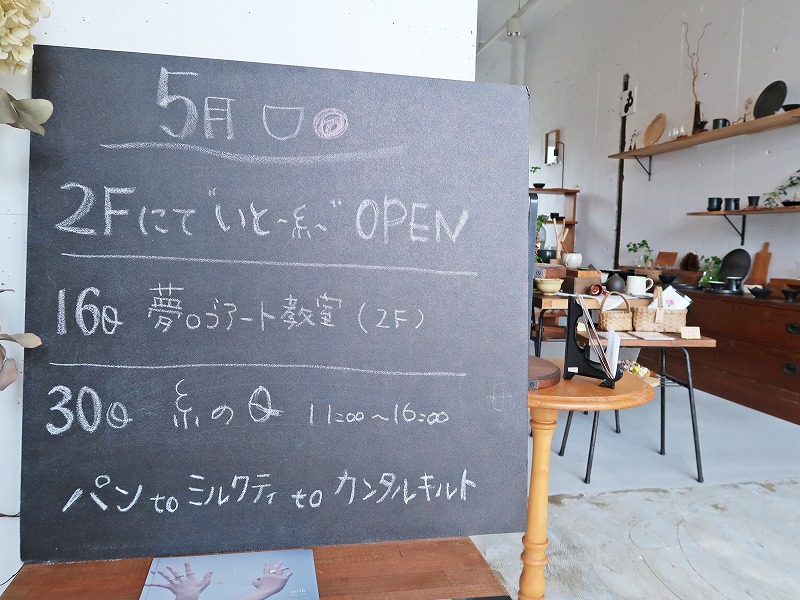 5月
2Fにて"いと〜糸〜" OPEN
16日 夢ロゴアート教室（2F）
30日 糸の日 11:00〜16:00
パン to ミルクティ to カンタルキルト